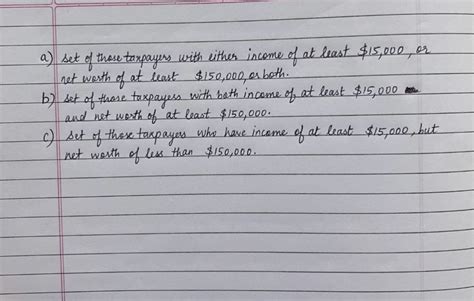 a) set of those taxpayers with either income of at least $15,000, or
net worth of at least $150,000, or both.
b) set of those taxpayers with both income of at least $15,000
and net worth of at least $150,000.
c) set of those taxpayers who have income of at least $15,000, but
net worth of less than $150,000.